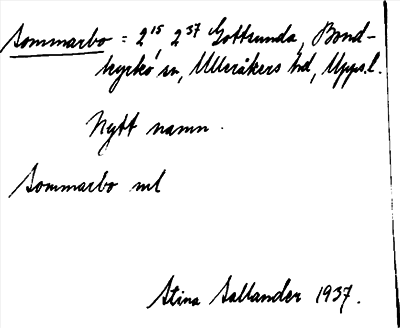 Sommarbo = 2¹⁵, 2³⁷ Gottsunda, Bond-
kyrko sn, Ulleråkers hd, Upps.l.
Nytt namn.
Sommarbo ml
Stina Sallander 1937.